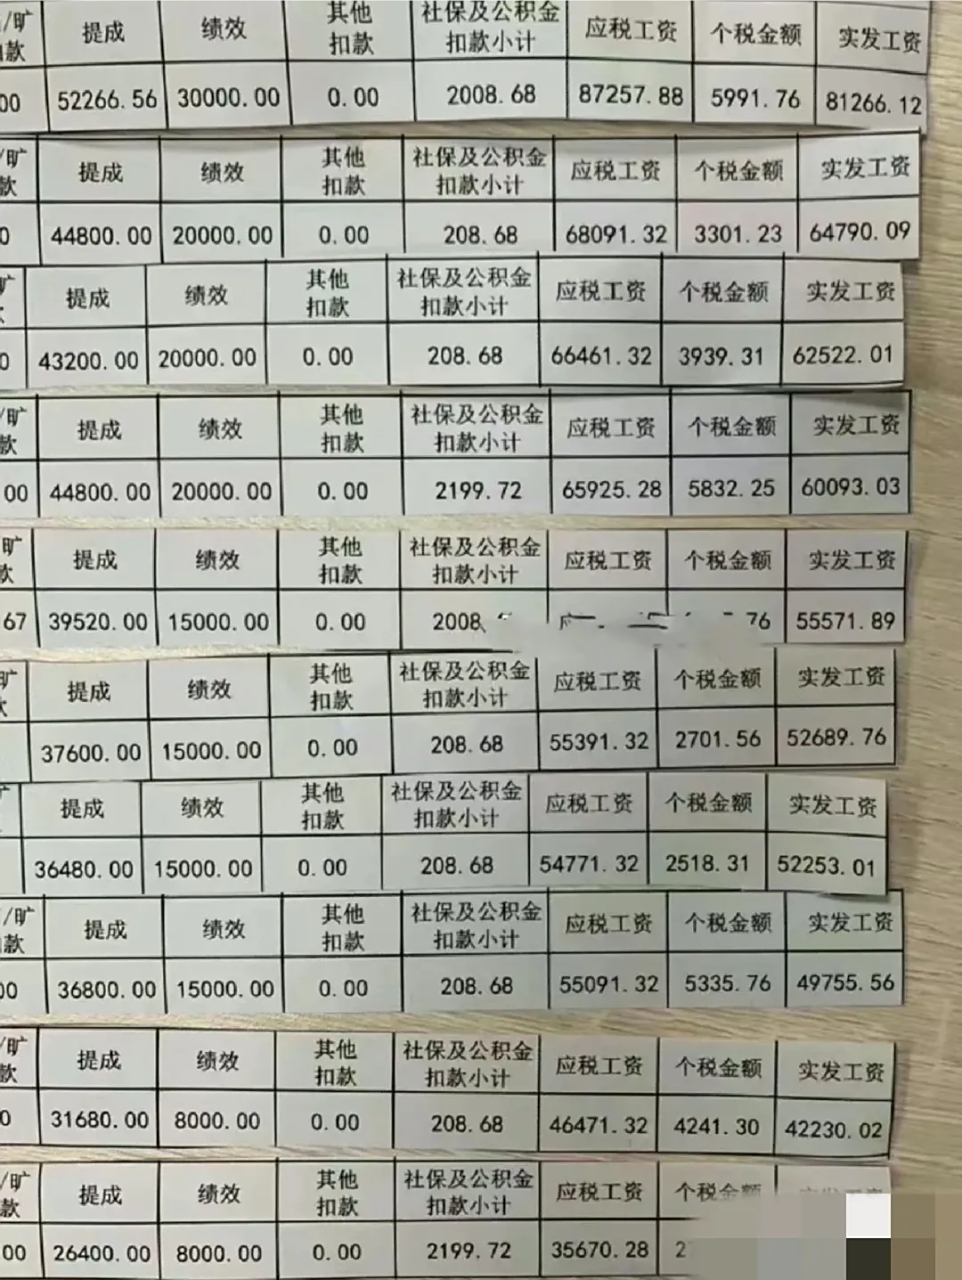 /旷 提成 绩效 其他 社保及公积金 应税工资 个税金额 实发工资
扣款 扣款 扣款小计
00 52266.56 30000.00 0.00 2008.68 87257.88 5991.76 81266.12
/旷 提成 绩效 其他 社保及公积金 应税工资 个税金额 实发工资
款 扣款 扣款小计
0 44800.00 20000.00 0.00 208.68 68091.32 3301.23 64790.09
旷 提成 绩效 其他 社保及公积金 应税工资 个税金额 实发工资
扣款 扣款小计
0 43200.00 20000.00 0.00 208.68 66461.32 3939.31 62522.01
/旷 提成 绩效 其他 社保及公积金 应税工资 个税金额 实发工资
款 扣款 扣款小计
00 44800.00 20000.00 0.00 2199.72 65925.28 5832.25 60093.03
旷 提成 绩效 其他 社保及公积金 应税工资 个税金额 实发工资
款 扣款 扣款小计
67 39520.00 15000.00 0.00 2008 76 55571.89
旷 提成 绩效 其他 社保及公积金 应税工资 个税金额 实发工资
扣款 扣款小计
37600.00 15000.00 0.00 208.68 55391.32 2701.56 52689.76
提成 绩效 其他 社保及公积金 应税工资 个税金额 实发工资
扣款 扣款小计
36480.00 15000.00 0.00 208.68 54771.32 2518.31 52253.01
/旷 提成 绩效 其他 社保及公积金 应税工资 个税金额 实发工资
款 扣款 扣款小计
00 36800.00 15000.00 0.00 208.68 55091.32 5335.76 49755.56
/旷 提成 绩效 其他 社保及公积金 应税工资 个税金额 实发工资
款 扣款 扣款小计
0 31680.00 8000.00 0.00 208.68 46471.32 4241.30 42230.02
/旷 提成 绩效 其他 社保及公积金 应税工资 个税金额
款 扣款 扣款小计
00 26400.00 8000.00 0.00 2199.72 35670.28